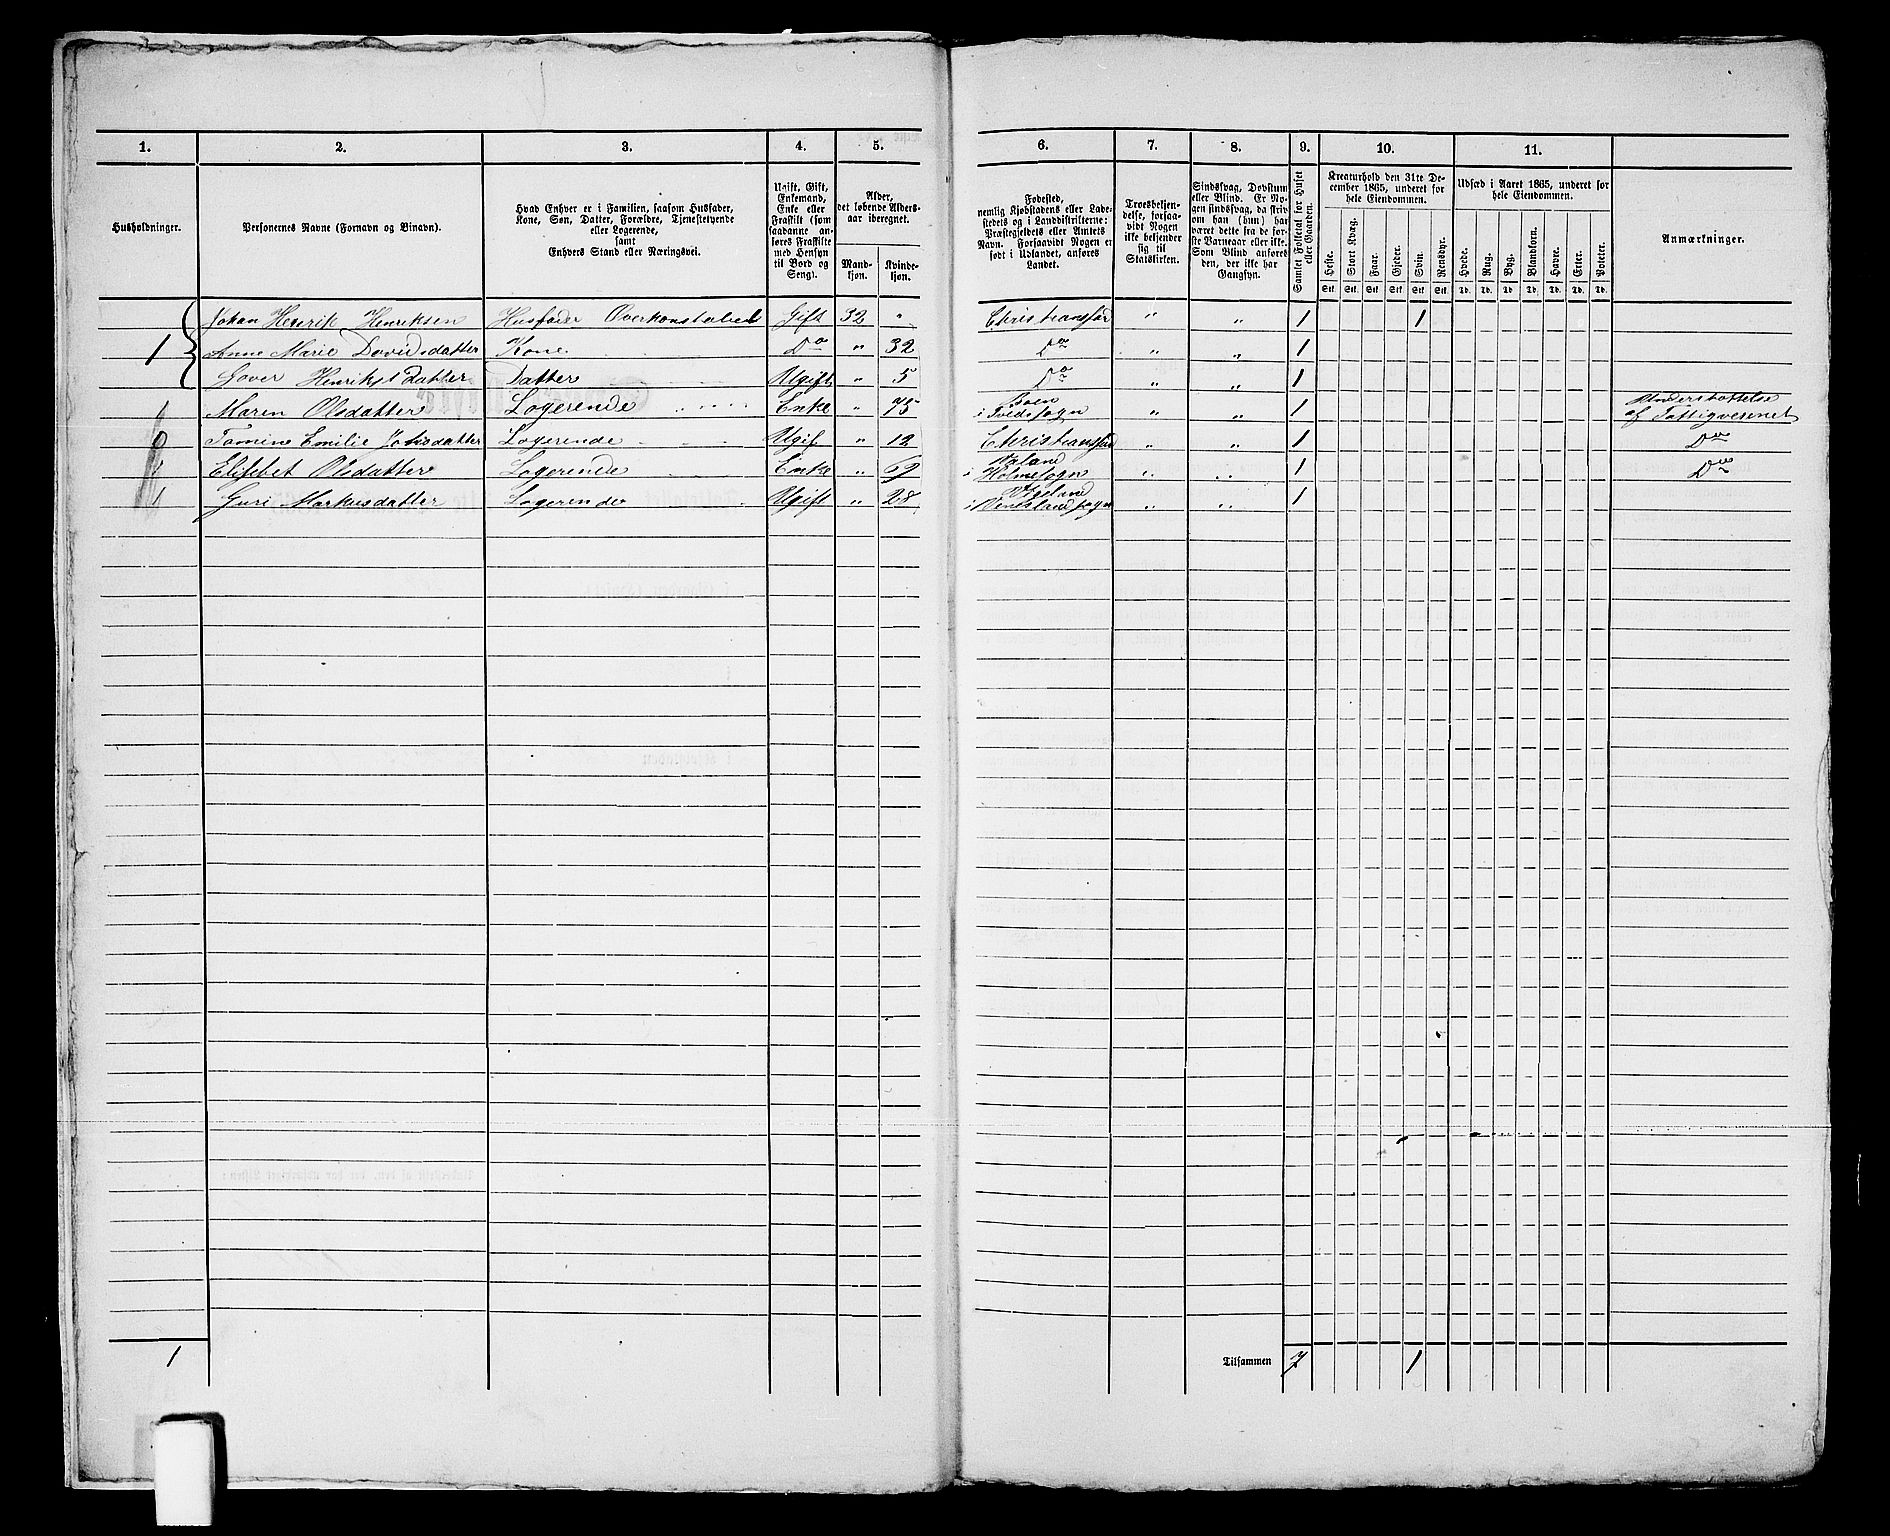 1. 2. 3. 4. 5. 6. 7. 8. 9. 10. 11.
Husholdninger.
Personernes Navne (Fornavn og Binavn).
Hvad Enhver er i Familien, saasom Husfader,
Kone, Søn, Datter, Forældre, Tjenestetyende
eller Logerende,
samt
Enhvers Stand eller Næringsvei.
Ugift, Gift,
Enkemand,
Enke eller
Fraskilt (som
saadanne an-
føres Fraskilte
med Hensyn
til Bord og
Seng).
Alder,
det løbende Alders-
aar iberegnet.
Mand-
kjøn.
Kvinde-
kjøn.
Fødested,
nemlig Kjøbstadens eller Lade-
stedets og i Landdistrikterne:
Præstegjeldets eller Amtets
Navn. Forsaavidt Nogen er
født i Udlandet, anføres
Landet.
Troesbekjen-
delse, forsaa-
vidt Nogen
ikke bekjender
sig til
Statskirken.
Sindssvag, Døvstum
eller Blind. Er No-
gen sindssvag, da skriv
om han (hun) har
været dette fra de før-
ste Barneaar eller ikke.
Som Blind anføres
den, der ikke har
Gangsyn.
Samlet Folketal for Huset
eller Gaarden.
Kreaturhold den 31te De-
cember 1865, underet for
hele Eiendommen.
Heste. Stort Kvæg. Faar. Gjeder. Svin. Rensdyr.
Stk. Stk. Stk. Stk. Stk. Stk.
Udsæd i Aaret 1865, underet for
hele Eiendommen.
Hvede. Rug. Byg. Blandkorn. Havre. Erter. Poteter.
Td. Td. Td. Td. Td. Td. Td.
Anmærkninger.
Johan Henrik Henriksen Husfader Overkonstabel Gift 32 " Christiansfør " " 1 1
1 Anne Marie Davidsdatter Kone Do " 32 Do " " 1
Henriksdatter Datter Ugift " 5 Do " " 1
Maren Olsdatter Logerende Enke " 75 Boen " " 1 Understøttelse
i Tvedsogn af Fattigvesenet
Tomine Emilie Logerende Ugif " 12 Christiansfør " " 1 Do
Elisebet Olsdatter Logerende Enke " 69 i Holmesogn " " 1 Do
Guri Markusdatter Logerende Ugift " 28 Vigeland " " 1
i Venneslandsogn
1
Tilsammen 7 1